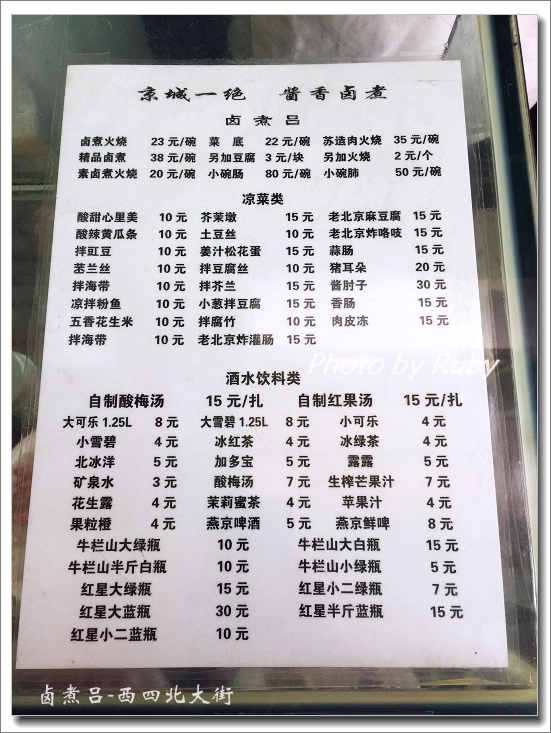 京城一绝 酱香卤煮
卤煮吕
卤煮火烧 23 元/碗 菜底 22 元/碗 苏造肉火烧 35 元/碗
精品卤煮 38 元/碗 另加豆腐 3 元/块 另加火烧 2 元/个
素卤煮火烧 20 元/碗 小碗肠 80 元/碗 小碗肺 50 元/碗
凉菜类
酸甜心里美 10 元 芥茉墩 15 元 老北京麻豆腐 15 元
酸辣黄瓜条 10 元 土豆丝 10 元 老北京炸咯吱 15 元
拌豇豆 10 元 姜汁松花蛋 15 元 蒜肠 15 元
苤兰丝 10 元 拌豆腐丝 10 元 猪耳朵 20 元
拌海带 10 元 拌芥兰 15 元 酱肘子 30 元
凉拌粉鱼 10 元 小葱拌豆腐 15 元 香肠 15 元
五香花生米 10 元 拌腐竹 10 元 肉皮冻 15 元
拌海带 10 元 老北京炸灌肠 15 元
Photo by Ruby
酒水饮料类
自制酸梅汤 15 元/扎 自制红果汤 15 元/扎
大可乐 1.25L 8 元 大雪碧 1.25L 8 元 小可乐 4 元
小雪碧 4 元 冰红茶 4 元 冰绿茶 4 元
北冰洋 5 元 加多宝 5 元 露露 5 元
矿泉水 3 元 酸梅汤 7 元 生榨芒果汁 7 元
花生露 4 元 茉莉蜜茶 4 元 苹果汁 4 元
果粒橙 4 元 燕京啤酒 5 元 燕京鲜啤 8 元
牛栏山大绿瓶 10 元 牛栏山大白瓶 15 元
牛栏山半斤白瓶 10 元 牛栏山小绿瓶 5 元
红星大绿瓶 15 元 红星小二绿瓶 7 元
红星大蓝瓶 30 元 红星半斤蓝瓶 15 元
红星小二蓝瓶 10 元
卤煮吕-西四北大街